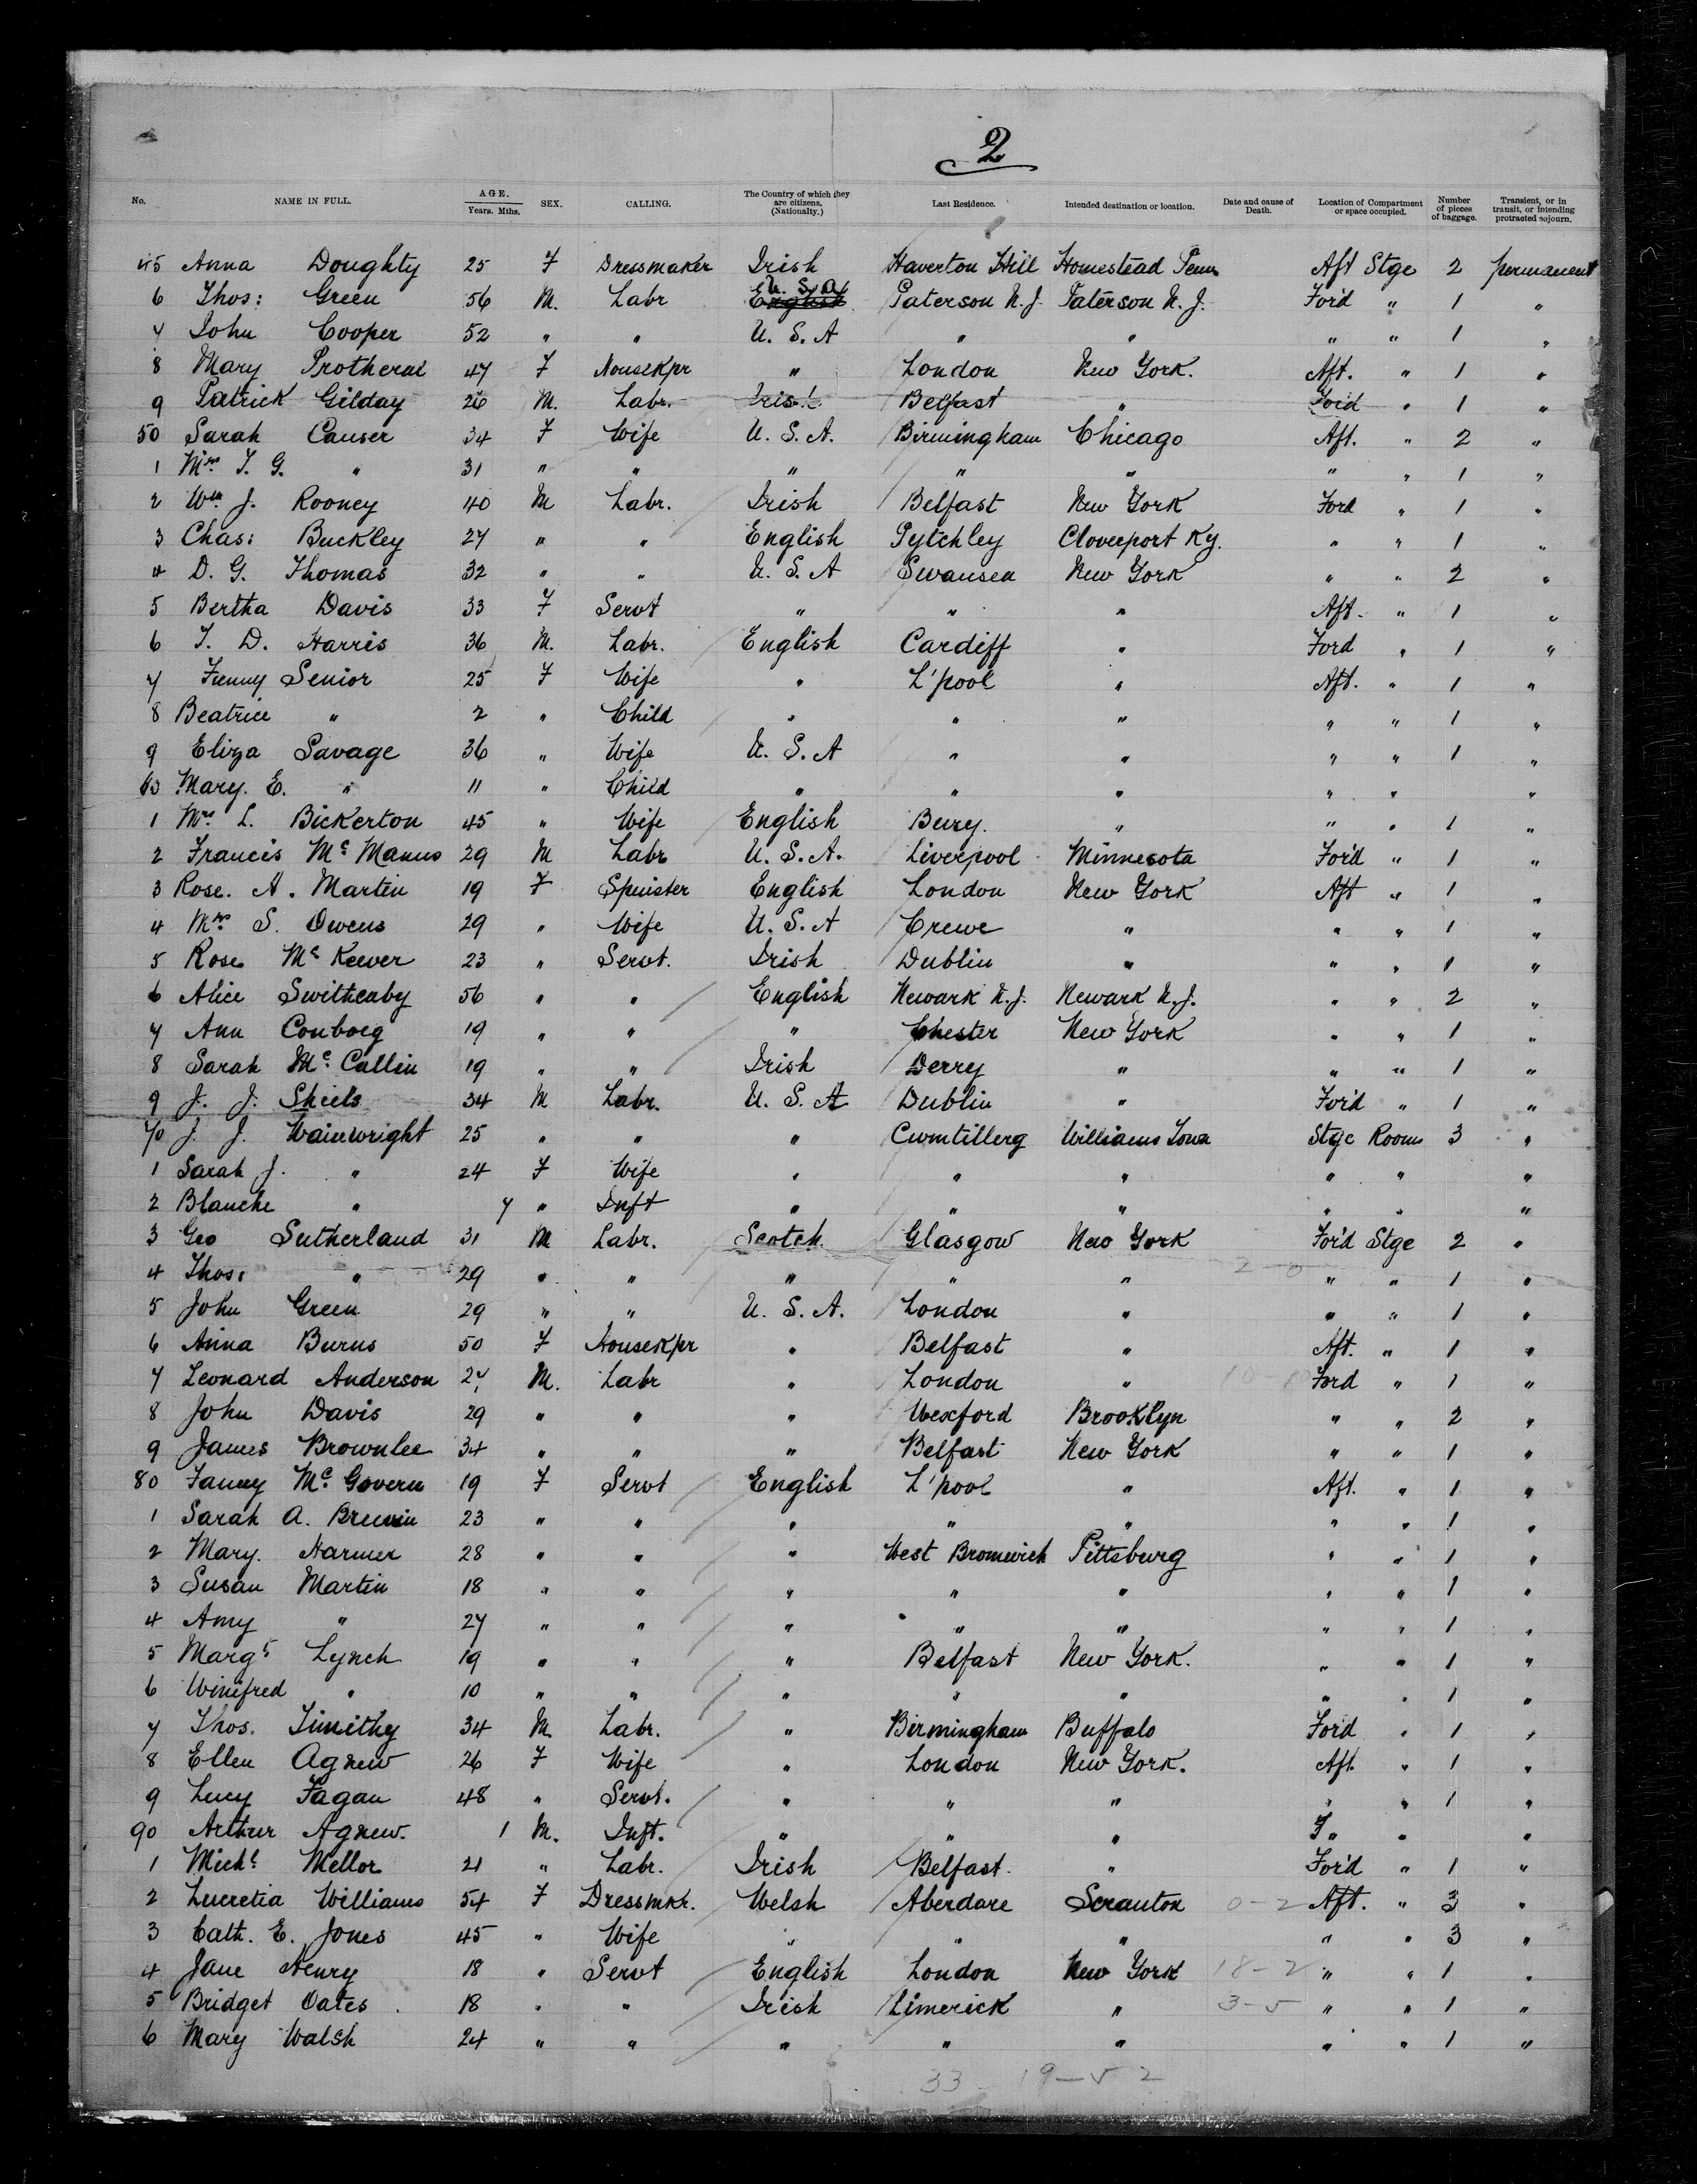 2
No. NAME IN FULL. AGE. Years. Mths. SEX. CALLING. The Country of which they are citizens. (Nationalty.) Last Residence. Intended destination or location. Date and cause of Death. Location of Compartment or space occupied. Number of pieces of baggage. Transient, or in transit, or intending protracted sojourn.
45 Anna Doughty 25 F Dressmaker Irish Haverton Hill Homestead Penn Aft Stge 2 permanent
6 Thos: Green 56 M. Labr English U.S.A Paterson N.J. Paterson N.J. For'd " 1 "
7 John Cooper 52 " " U.S.A " " " " 1 "
8 Mary Protherae 47 F Housekpr " London New York. Aft. " 1 "
9 Patrick Gilday 26 M. Labr. Irish Belfast " Ford " 1 "
50 Sarah Causer 34 F Wife U.S.A. Birmingham Chicago Aft. " 2 "
1 Mrs. T. G. " 31 " " " " " " " 1 "
2 Wm. J. Rooney 40 M Labr. Irish Belfast New York Ford " 1 "
3 Chas: Buckley 27 " " English Pytchley Cloverport Ky. " " 1 "
4 D. G. Thomas 32 " " U.S.A Swansea New York " " 2 "
5 Bertha Davis 33 F Servt " " " Aft. " 1 "
6 T. D. Harris 36 M. Labr. English Cardiff " Ford " 1 "
7 Fanny Senior 25 F Wife " L'pool " Aft. " 1 "
8 Beatrice " 2 " Child " " " " " 1 "
9 Eliza Savage 36 " Wife U.S.A " " " " 1 "
60 Mary. E. " 11 " Child " " " " " "
1 Mrs. L. Bickerton 45 " Wife English Bury. " " " 1 "
2 Francis Mc Manus 29 M Labr U.S.A. Liverpool Minnesota For'd " 1 "
3 Rose. A. Martin 19 F Spinster English London New York Aft " 1 "
4 Mrs. S. Owens 29 " Wife U.S.A Crewe " " " 1 "
5 Rose Mc Keever 23 " Servt. Irish Dublin " " " 1 "
6 Alice Swithenby 56 " " English Newark N.J. Newark N.J. " " 2 "
7 Ann Conboeg 19 " " " Chester New York " " 1 "
8 Sarah Mc Callin 19 " " Irish Derry " " " 1 "
9 J. J. Shiels 34 M Labr. U.S.A Dublin " For'd " 1 "
70 J. J. Wainwright 25 " " " Cwmtillerg Williams Iowa Stge Room 3 "
1 Sarah J. " 24 F Wife " " " " " "
2 Blanche " 7 " Inft " " " " " "
3 Geo Sutherland 31 M Labr. Scotch Glasgow New York For'd Stge 2 "
4 Thos: " 29 " " " " " " " 1 "
5 John Green 29 " " U.S.A. London " " " 1 "
6 Anna Burns 50 F Housekpr " Belfast " Aft. " 1 "
7 Leonard Anderson 27 M. Labr " London " Ford " 1 "
8 John Davis 29 " " " Wexford Brooklyn " " 2 "
9 James Brownlee 34 " " " Belfast New York " " 1 "
80 Fanny Mc Govern 19 F Servt English L'pool " Aft. " 1 "
1 Sarah A. Brewin 23 " " " " " " " 1 "
2 Mary. Harmer 28 " " " West Bromwich Pittsburg " " 1 "
3 Susan Martin 18 " " " " " " " 1 "
4 Amy " 27 " " " " " " " 1 "
5 Margt Lynch 19 " " " Belfast New York. " " 1 "
6 Winifred " 10 " " " " " " " 1 "
7 Thos. Timithy 34 M Labr. " Birmingham Buffalo Ford " 1 "
8 Ellen Agnew 26 F Wife " London New York. Aft " 1 "
9 Lucy Fagan 48 " Servt. " " " " " 1 "
90 Arthur Agnew. 1 M. Inft. " " " F " " "
1 Michl Mellor 21 " Labr. Irish Belfast. " For'd " 1 "
2 Lucretia Williams 54 F Dressmkr. Welsh Aberdare Scranton 0-2 Aft. " 3 "
3 Cath. E. Jones 45 " Wife " " " " " 3 "
4 Jane Henry 18 " Servt English London New York 18-2 " " 1 "
5 Bridget Oates. 18 " " Irish Limerick " 3-5 " " 1 "
6 Mary Walsh 24 " " " " " " " 1 "
33 19-5 2